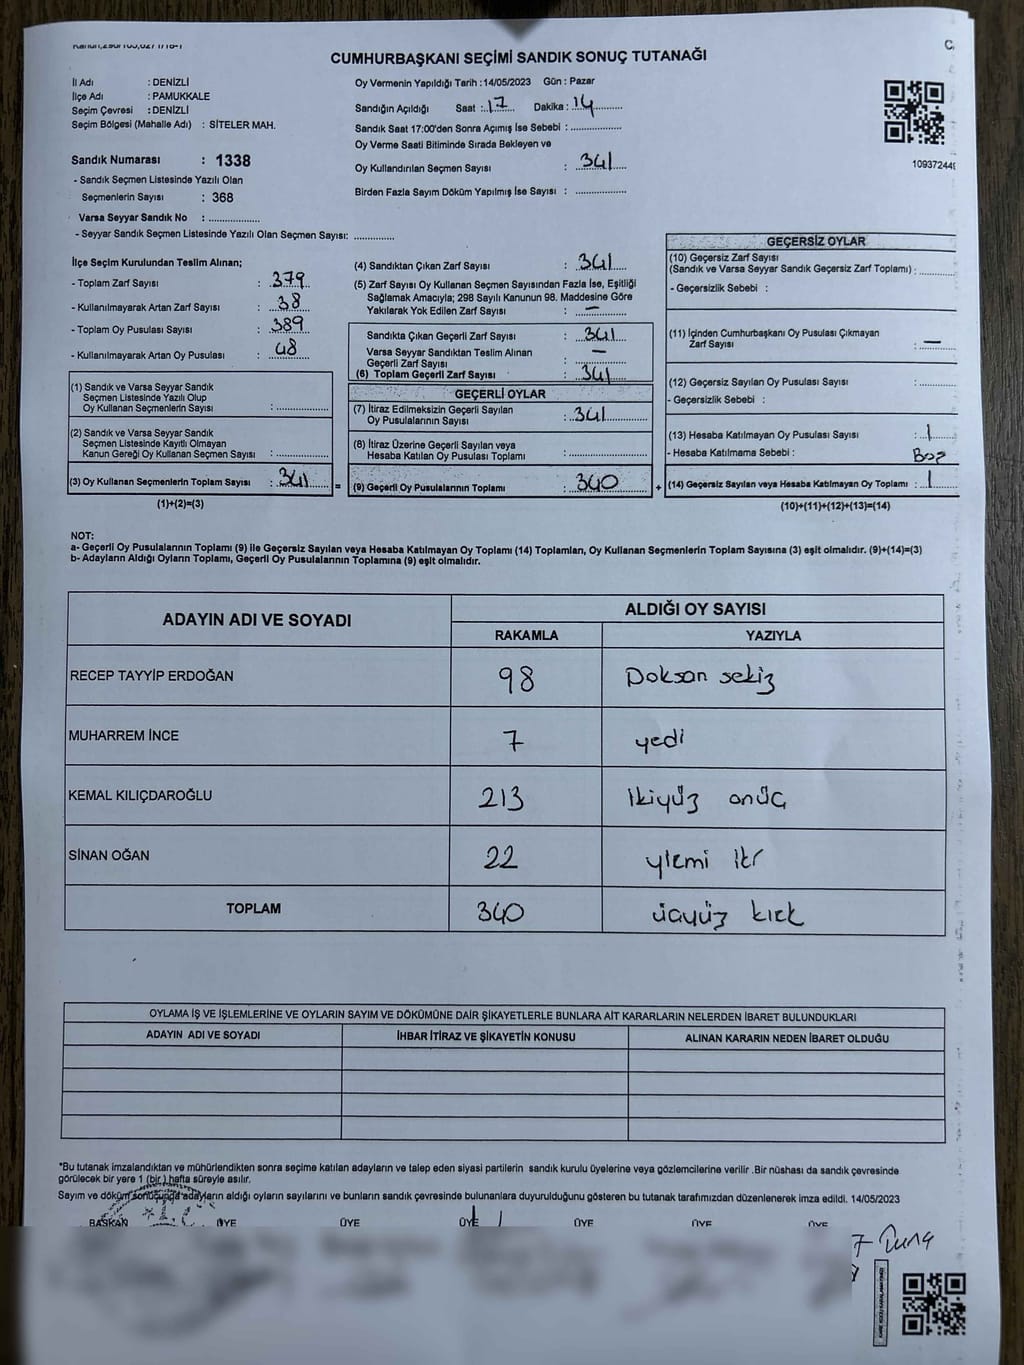 CUMHURBAŞKANI SEÇİMİ SANDIK SONUÇ TUTANAĞI
İl Adı : DENİZLİ
İlçe Adı : PAMUKKALE
Seçim Çevresi : DENİZLİ
Seçim Bölgesi (Mahalle Adı) : SİTELER MAH.
Sandık Numarası : 1338
- Sandık Seçmen Listesinde Yazılı Olan
Seçmenlerin Sayısı : 368
Varsa Seyyar Sandık No : ..................
- Seyyar Sandık Seçmen Listesinde Yazılı Olan Seçmen Sayısı: ..............
Oy Vermenin Yapıldığı Tarih : 14/05/2023 Gün : Pazar
Sandığın Açıldığı Saat : 17 Dakika : 14
Sandık Saat 17:00'den Sonra Açımış İse Sebebi : ..................
Oy Verme Saati Bitiminde Sırada Bekleyen ve
Oy Kullandırılan Seçmen Sayısı : 341
Birden Fazla Sayım Döküm Yapılmış İse Sayısı : ..................
109372448
İlçe Seçim Kurulundan Teslim Alınan;
- Toplam Zarf Sayısı : 379
- Kullanılmayarak Artan Zarf Sayısı : 38
- Toplam Oy Pusulası Sayısı : 389
- Kullanılmayarak Artan Oy Pusulası : 48
(1) Sandık ve Varsa Seyyar Sandık
Seçmen Listesinde Yazılı Olup
Oy Kullanan Seçmenlerin Sayısı : ..................
(2) Sandık ve Varsa Seyyar Sandık
Seçmen Listesinde Kayıtlı Olmayan
Kanun Gereği Oy Kullanan Seçmen Sayısı : ..................
(3) Oy Kullanan Seçmenlerin Toplam Sayısı : 341 =
(1)+(2)=(3)
(4) Sandıktan Çıkan Zarf Sayısı : 341
(5) Zarf Sayısı Oy Kullanan Seçmen Sayısından Fazla İse, Eşitliği
Sağlamak Amacıyla; 298 Sayılı Kanunun 98. Maddesine Göre
Yakılarak Yok Edilen Zarf Sayısı : —
Sandıkta Çıkan Geçerli Zarf Sayısı : 341
Varsa Seyyar Sandıktan Teslim Alınan —
Geçerli Zarf Sayısı :
(6) Toplam Geçerli Zarf Sayısı : 341
GEÇERLİ OYLAR
(7) İtiraz Edilmeksizin Geçerli Sayılan
Oy Pusulalarının Sayısı : 341
(8) İtiraz Üzerine Geçerli Sayılan veya
Hesaba Katılan Oy Pusulası Toplamı : ..................
(9) Geçerli Oy Pusulalarının Toplamı : 340 +
GEÇERSİZ OYLAR
(10) Geçersiz Zarf Sayısı
(Sandık ve Varsa Seyyar Sandık Geçersiz Zarf Toplamı) : .........
- Geçersizlik Sebebi :
(11) İçinden Cumhurbaşkanı Oy Pusulası Çıkmayan
Zarf Sayısı : —
(12) Geçersiz Sayılan Oy Pusulası Sayısı : .........
- Geçersizlik Sebebi :
(13) Hesaba Katılmayan Oy Pusulası Sayısı : 1
- Hesaba Katılmama Sebebi : Boş
(14) Geçersiz Sayılan veya Hesaba Katılmayan Oy Toplamı : 1
(10)+(11)+(12)+(13)=(14)
NOT:
a- Geçerli Oy Pusulalarının Toplamı (9) ile Geçersiz Sayılan veya Hesaba Katılmayan Oy Toplamı (14) Toplamları, Oy Kullanan Seçmenlerin Toplam Sayısına (3) eşit olmalıdır. (9)+(14)=(3)
b- Adayların Aldığı Oyların Toplamı, Geçerli Oy Pusulalarının Toplamına (9) eşit olmalıdır.
ADAYIN ADI VE SOYADI ALDIĞI OY SAYISI
RAKAMLA YAZIYLA
RECEP TAYYİP ERDOĞAN 98 Doksan sekiz
MUHARREM İNCE 7 yedi
KEMAL KILIÇDAROĞLU 213 ikiyüz onüç
SİNAN OĞAN 22 yirmi iki
TOPLAM 340 üçyüz kırk
OYLAMA İŞ VE İŞLEMLERİNE VE OYLARIN SAYIM VE DÖKÜMÜNE DAİR ŞİKAYETLERLE BUNLARA AİT KARARLARIN NELERDEN İBARET BULUNDUKLARI
ADAYIN ADI VE SOYADI İHBAR İTİRAZ VE ŞİKAYETİN KONUSU ALINAN KARARIN NEDEN İBARET OLDUĞU
*Bu tutanak imzalandıktan ve mühürlendikten sonra seçime katılan adayların ve talep eden siyasi partilerin sandık kurulu üyelerine veya gözlemcilerine verilir .Bir nüshası da sandık çevresinde
görülecek bir yere 1 (bir) hafta süreyle asılır.
Sayım ve döküm sonucunda adayların aldığı oyların sayılarını ve bunların sandık çevresinde bulunanlara duyurulduğunu gösteren bu tutanak tarafımızdan düzenlenerek imza edildi. 14/05/2023
BAŞKAN ÜYE ÜYE ÜYE ÜYE ÜYE ÜYE